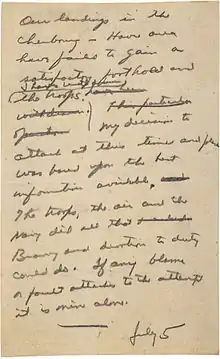 Our landings in the
Cherbourg - Havre area
have failed to gain a
satisfactory foothold and
I have withdrawn
the troops. have been
withdrawn. This particular
operation My decision to
attack at this time and place
was based upon the best
information available,
The troops, the air and the
Navy did all that
Bravery and devotion to duty
could do. If any blame
or fault attaches to the attempt
it is mine alone.
July 5